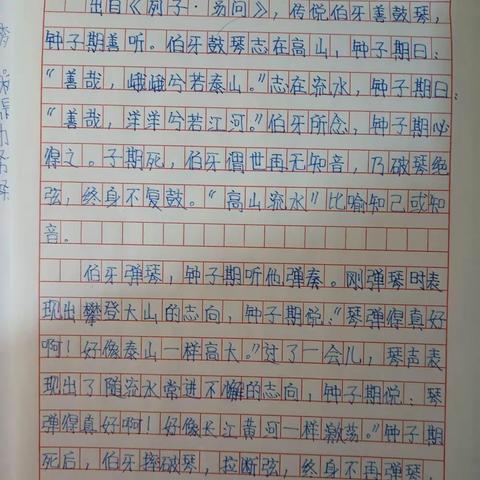 出自《列子·汤问》，传说伯牙善鼓琴，
钟子期善听。伯牙鼓琴志在高山，钟子期曰：
“善哉，峨峨兮若泰山。”志在流水，钟子期曰：
“善哉，洋洋兮若江河。”伯牙所念，钟子期必
得之。子期死，伯牙谓世再无知音，乃破琴绝
弦，终身不复鼓。“高山流水”比喻知己或知
音。
伯牙弹琴，钟子期听他弹奏。刚弹琴时表
现出攀登大山的志向，钟子期说：“琴弹得真好
啊！好像泰山一样高大。”过了一会儿，琴声表
现出了随流水常进不懈的志向，钟子期说：琴
弹得真好啊！好像长江黄河一样激荡。”钟子期
死后，伯牙摔破琴，拉断弦，终身不再弹琴，